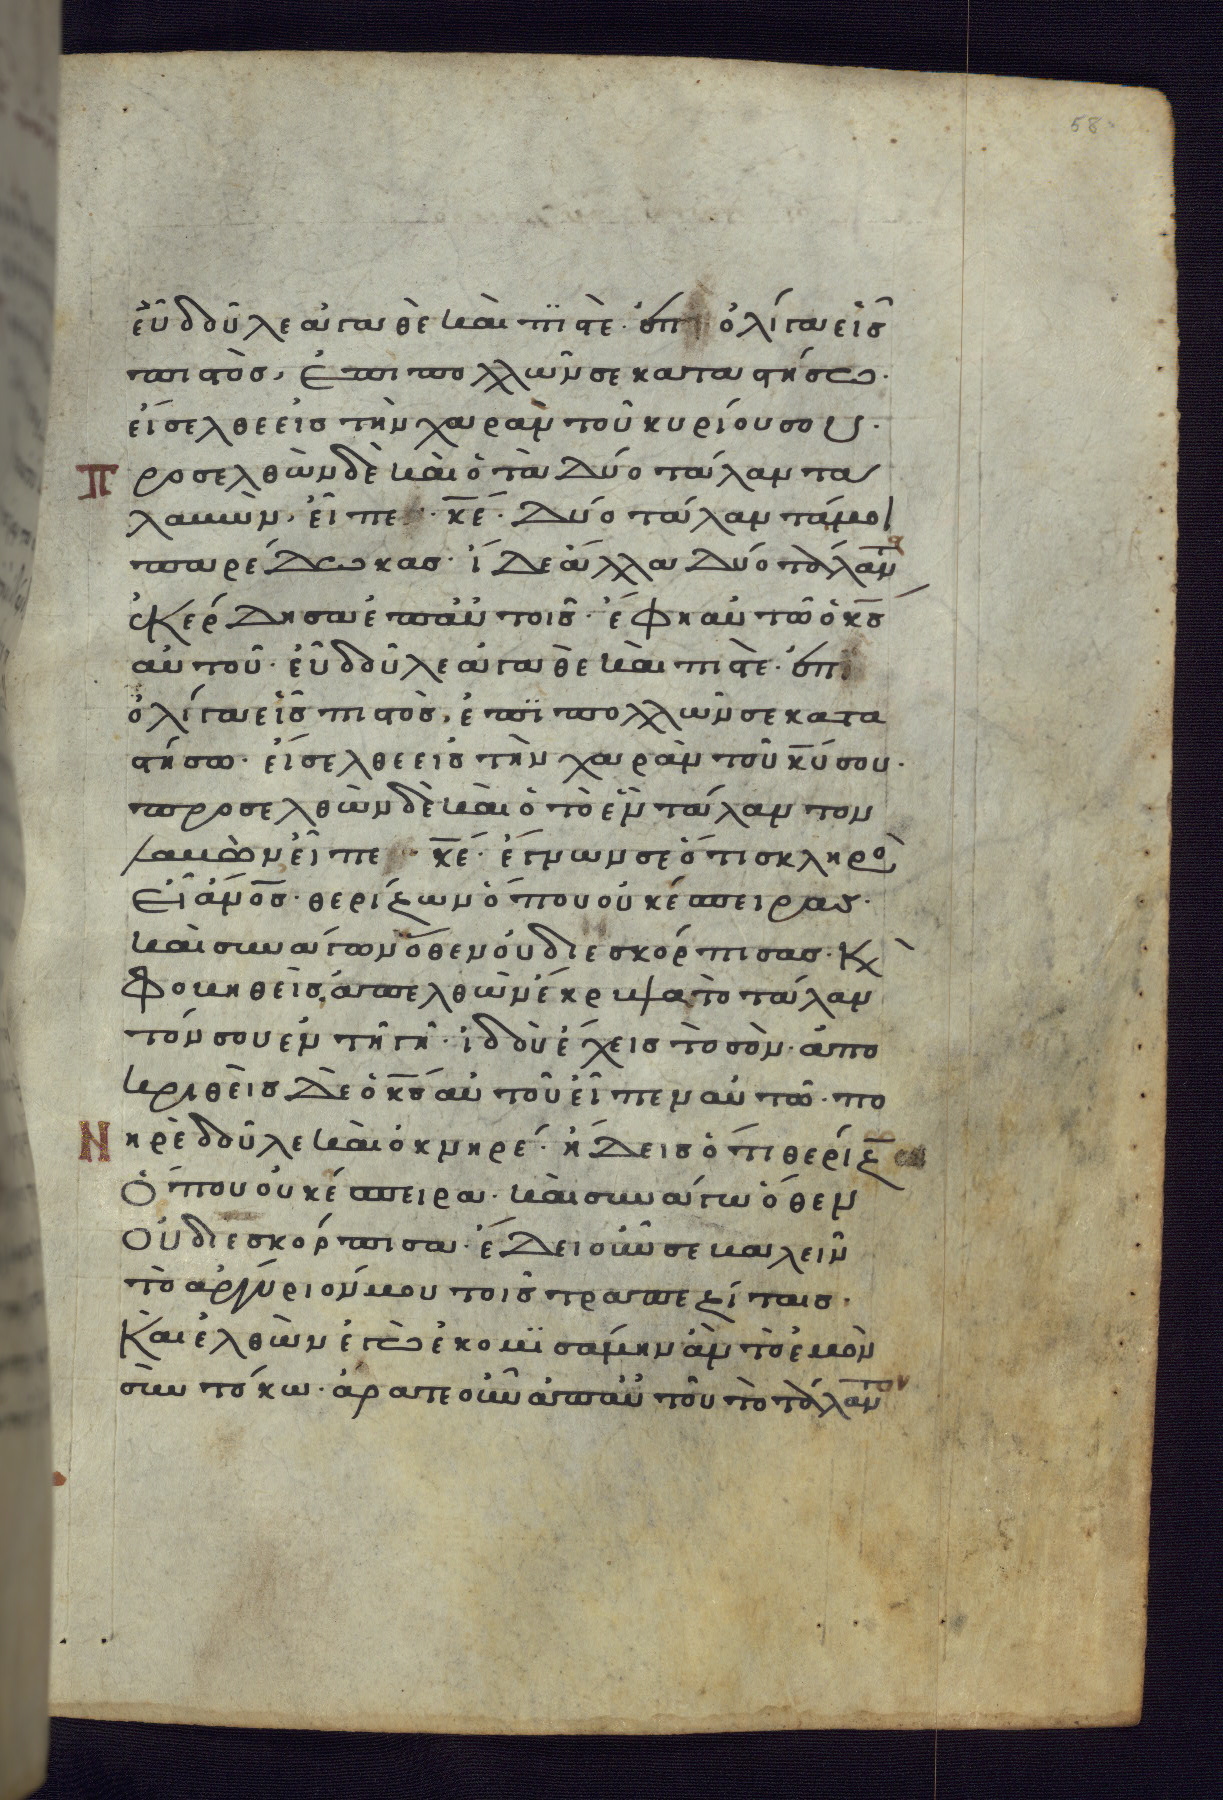 58
εὖ δοῦλε ἀγαθὲ καὶ πϊστὲ· ἐπὶ ὀλίγα εἶς
πιστὸς, ἐπι πολλῶν σε καταστήσω·
εἴσελθε εἰς τὴν χαρὰν τοῦ κυρίου σου·
Προσελθὼν δὲ καὶ ὁ τὰ δύο τάλαντα
λαβὼν, εἶπε· κ̅ε̅· δύο τάλαντά μοι
παρέδωκας· ἴδε ἄλλα δύο τάλαντα
ἐκέρδησα ἐπ' αὐτοῖς· ἔφη αὐτῶ ὁ κ̅ς̅
αὐτοῦ· εὖ δοῦλε ἀγαθὲ καὶ πιστὲ· ἐπὶ
ὀλίγα εἶς πιστὸς, ἐπῒ πολλῶν σε κατα
στήσω· εἴσελθε εἰς τὴν χαρὰν τοῦ κ̅υ̅ σου·
προσελθὼν δὲ καὶ ὁ τὸ ἓν τάλαντον
λαβὼν εἶπε· κ̅ε̅· ἔγνων σε ὅτι σκληρὸς
εἶ ἀ̅ν̅ο̅ς̅· θερίζων ὅπου οὐκ έσπειρας·
καὶ συνάγων ὅθεν οὐ διεσκόρπισας· κ̀
φοβηθεὶς, ἀπελθὼν ἔκρυψα τὸ τάλαν
τόν σου ἐν τῆ γῆ· ἰδοὺ ἔχεις τὸ σὸν· ἀπο
κριθεὶς δὲ ὁ κ̅ς̅ αὐτοῦ εἶπεν αὐτῶ· πο
Νηρὲ δοῦλε καὶ ὀκνηρέ· ἤδεις ὅτι θερίζω
ὅπου οὐκ έσπειρα· καὶ συνάγω ὅθεν
οὐ διεσκόρπισα· ἔδει οὖν σε βαλεῖν
τὸ ἀργύριόν μου τοῖς τραπεζίταις·
Καὶ ἐλθὼν ἐγὼ ἐκομϊσάμην ἂν τὸ ἐμὸν
σὺν τόκω· ἄρατε οὖν ἀπ' αὐτοῦ τὸ τάλαντον